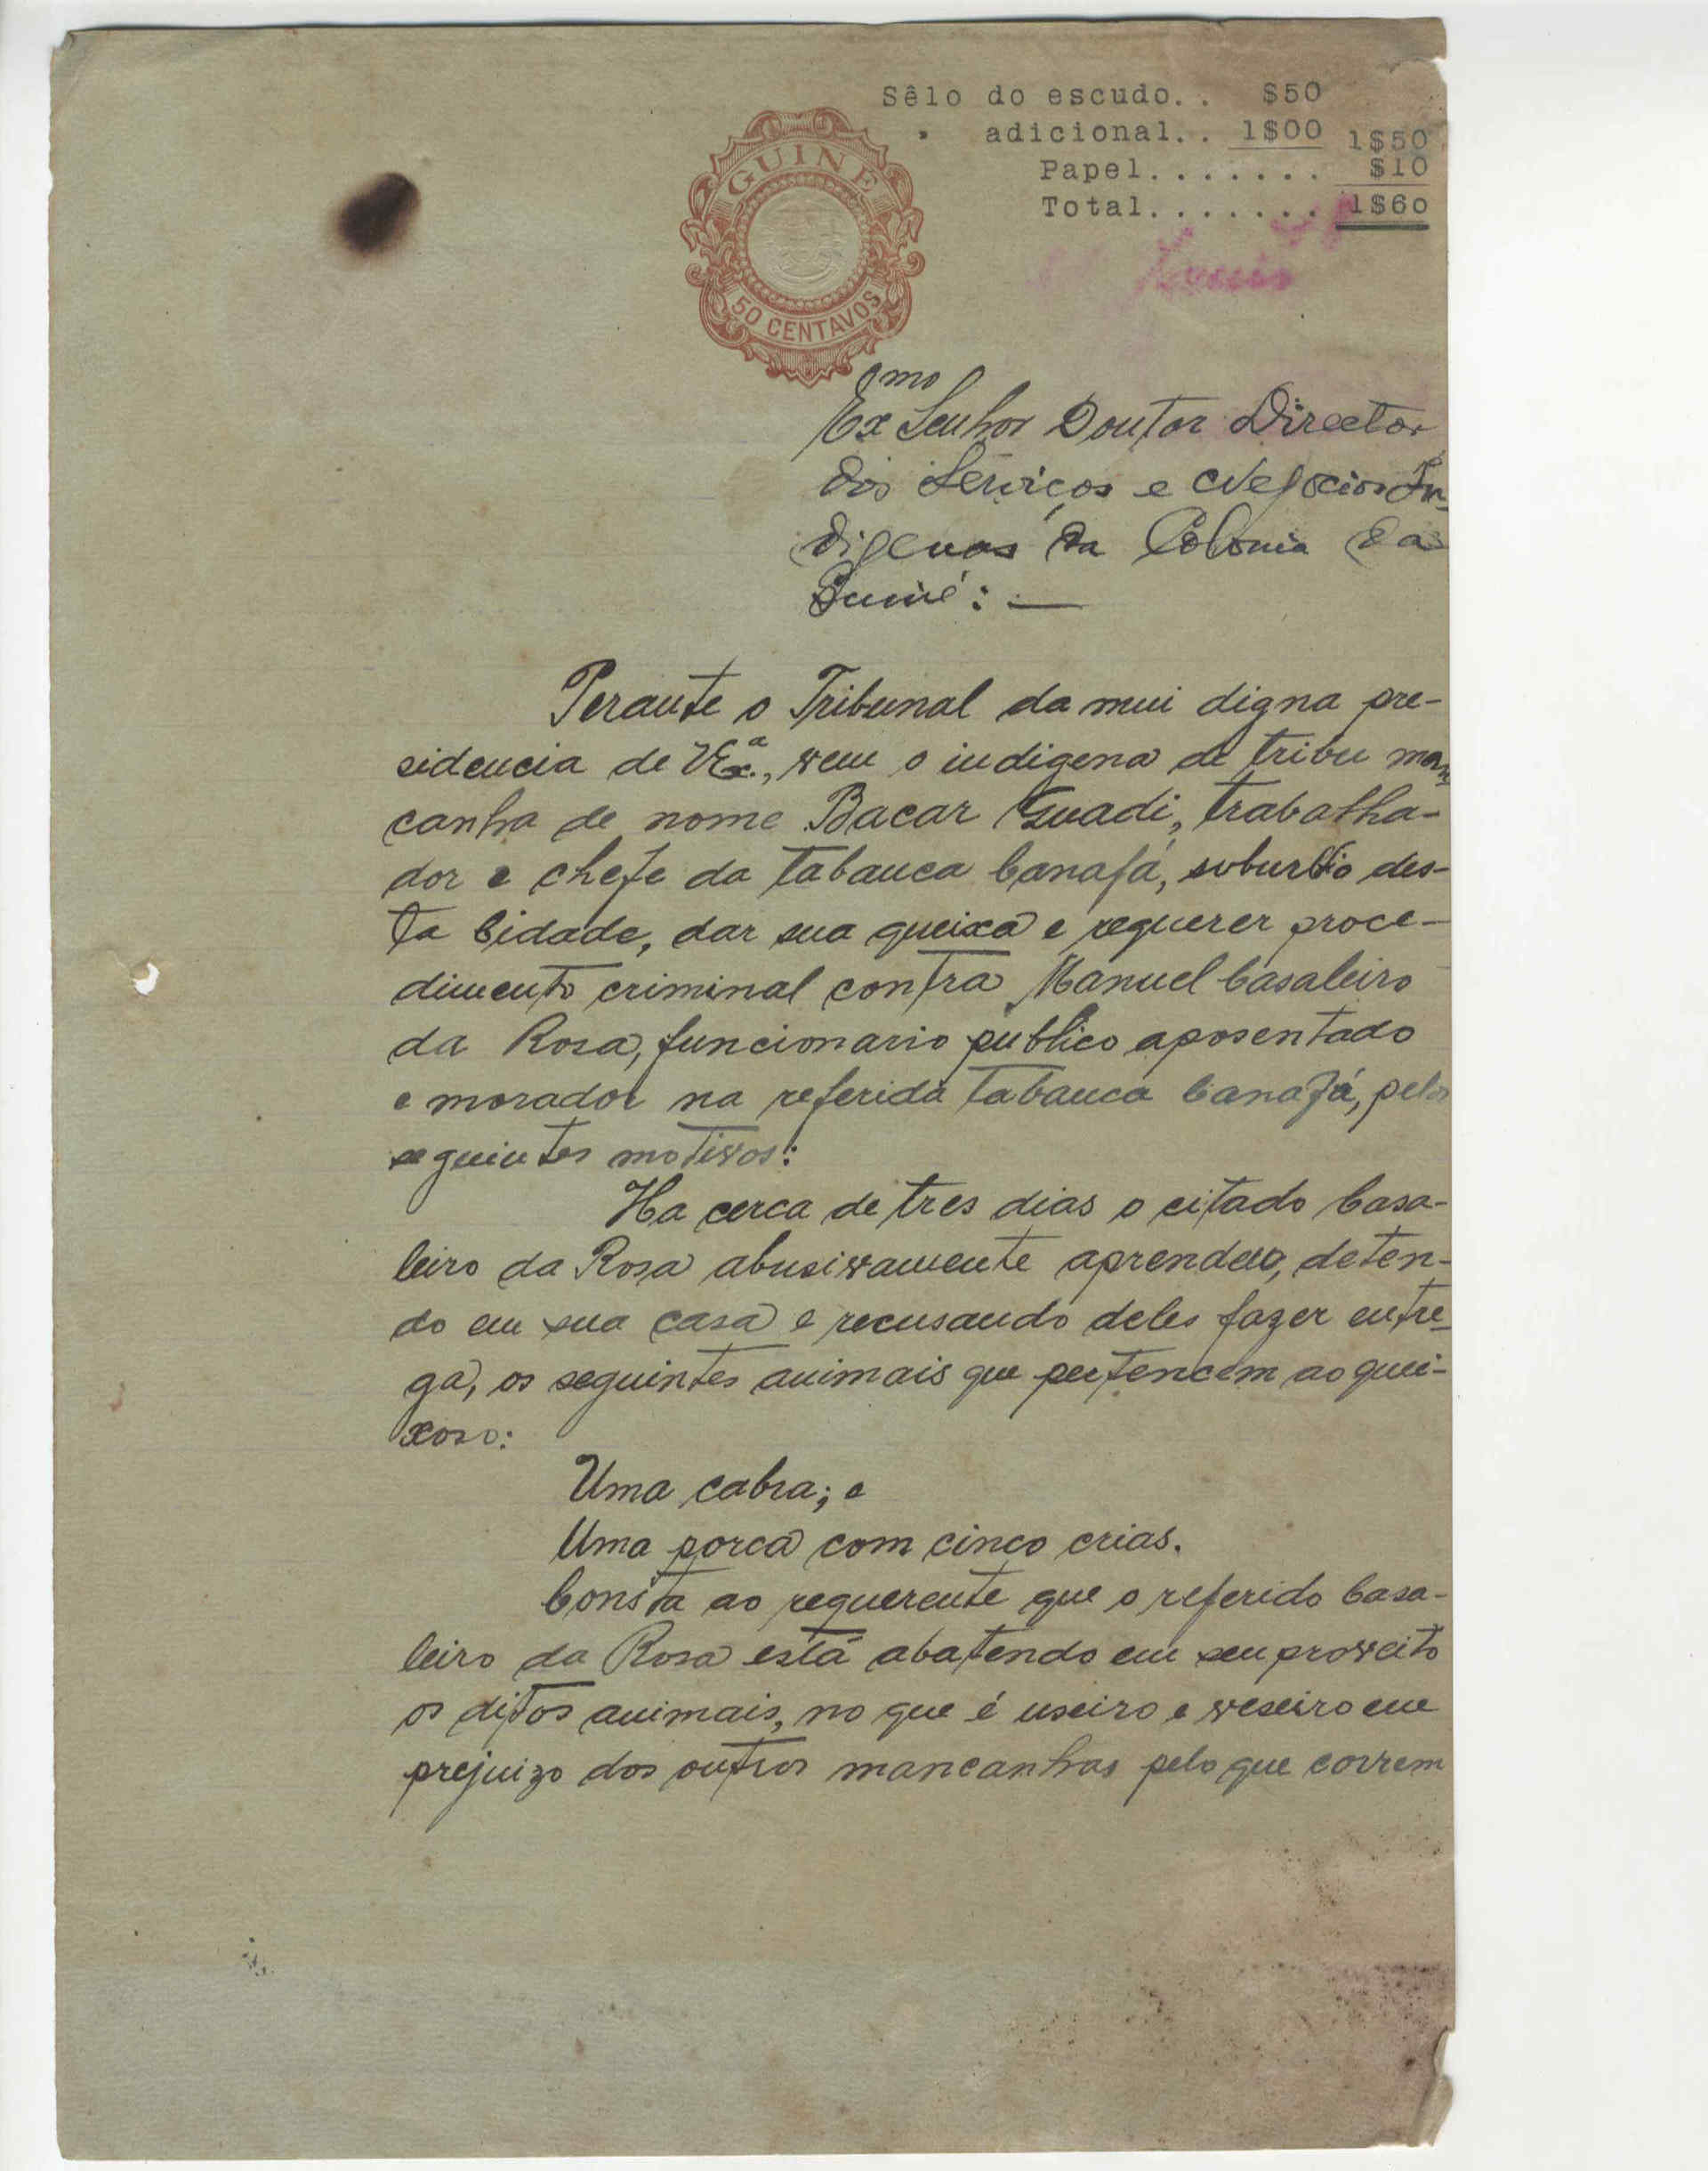 Sêlo do escudo.. $50
" adicional.. 1$00 1$50
Papel....... $10
Total....... 1$60
GUINE
50 CENTAVOS
Exmo Senhor Doutor Director
dos Serviços e Negocios In-
digenas da Colonia da
Guiné: —
Perante o Tribunal da mui digna pre-
sidencia de V. Exª., vem o indigena de tribu man-
canha de nome Bacar Guadi, trabalha-
dor e chefe da tabanca Canafá, suburbio des-
ta Cidade, dar sua queixa e requerer proce-
dimento criminal contra Manuel Casaleiro
da Rosa, funcionario publico aposentado
e morador na referida tabanca Canafá, pelos
seguintes motivos:
Ha cerca de tres dias o citado Casa-
leiro da Rosa abusivamente aprendeu, deten-
do em sua casa e recusando deles fazer entre-
ga, os seguintes animais que pertencem ao quei-
xoso:
Uma cabra; e
Uma porca com cinco crias.
Consta ao requerente que o referido Casa-
leiro da Rosa está abatendo em seu proveito
os ditos animais, no que é useiro e veseiro em
prejuizo dos outros mancanhas pelo que correm